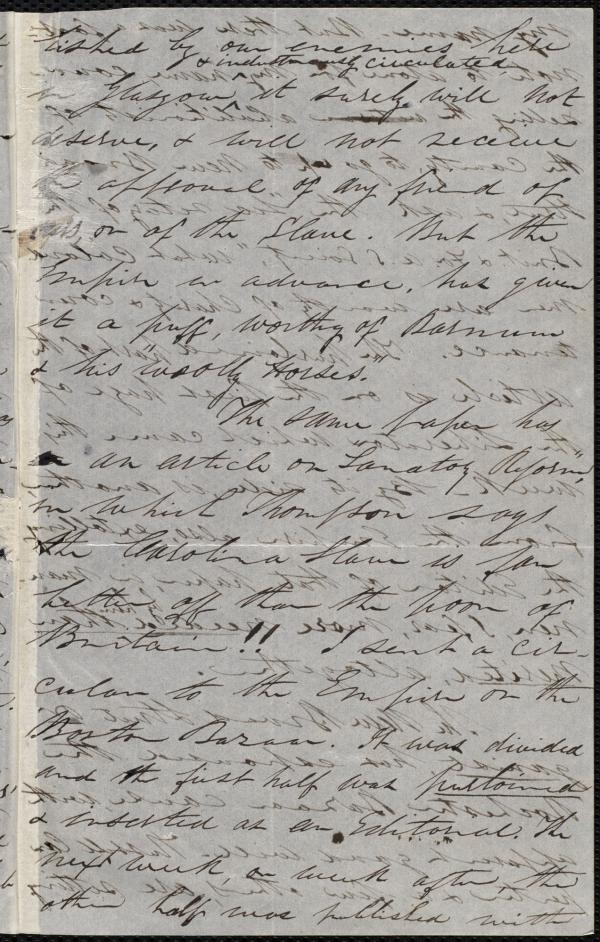 lished by our enemies here
& industriously circulated
in Glasgow it surely will not
deserve, & will not receive
the approval of any friend of
ours or of the Slave. But the
Empire in advance, has given
it a puff, worthy of Barnum
& his "woolly Horses."
The same paper has
an article on Sanatory Reform,
in which Thompson says
the Carolina Slave is far
better off than the poor of
Britain!! I sent a cir-
cular to the Empire on the
Boston Bazaar. It was divided
and the first half was purloined
& inserted as an Editorial. The
next week, or week after, the
other half was published with